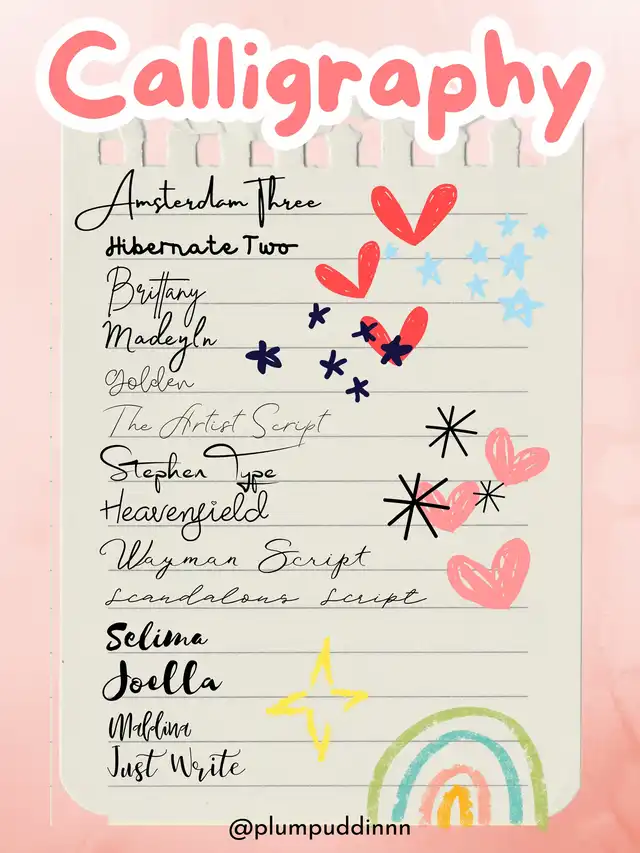 Calligraphy
Amsterdam Three
Hibernate Two
Brittany
Madeyln
golden
The Artist Script
Stephen Type
Heavenfield
Wayman Script
scandalous script
Selima
Joella
Maldina
Just Write
@plumpuddinnn